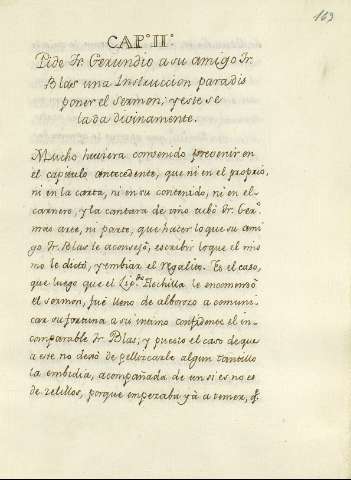 163
CAP.º II.º
Pide Fr. Gerundio a su amigo Fr.
Blas una Instruccion para dis
poner el Sermon; y este se
la da divinamente.
Mucho huviera convenido prevenir en
el capitulo antecedente, que ni en el proprio,
ni en la carta, ni en su contenido, ni en el
carnero, y la cantara de vino tubo Fr. Ger.º
mas arte, ni parte, que hacer lo que su ami
go Fr. Blas le aconsejò, escribir lo que el mis
mo le dictò, y embiar el regalito. Es el caso,
que luego que el Lic.do Flechilla le encomendò
el sermon, fuè lleno de alborozo a comuni
car su fortuna a su intimo confidente el in-
comparable Fr. Blas, y puesto el caso de que
a este no dexò de pellizcarle algun tantillo
la embidia, acompañada de un si es no es
de zelillos, porque empezaba yà a temer, q.